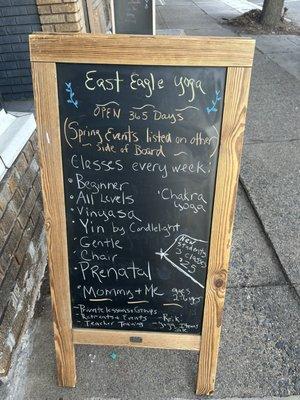 East Eagle Yoga
OPEN 365 Days
(Spring Events listed on other
side of Board)
Classes every week:
• Beginner
• All Levels
• Chakra
Yoga
• Vinyasa
• Yin by Candlelight
• Gentle
• Chair
• Prenatal
• Mommy + Me
New
Students
3 Classes
$25
- Private lessons + Groups
- Retreats + Events
- Teacher Training
- Reiki